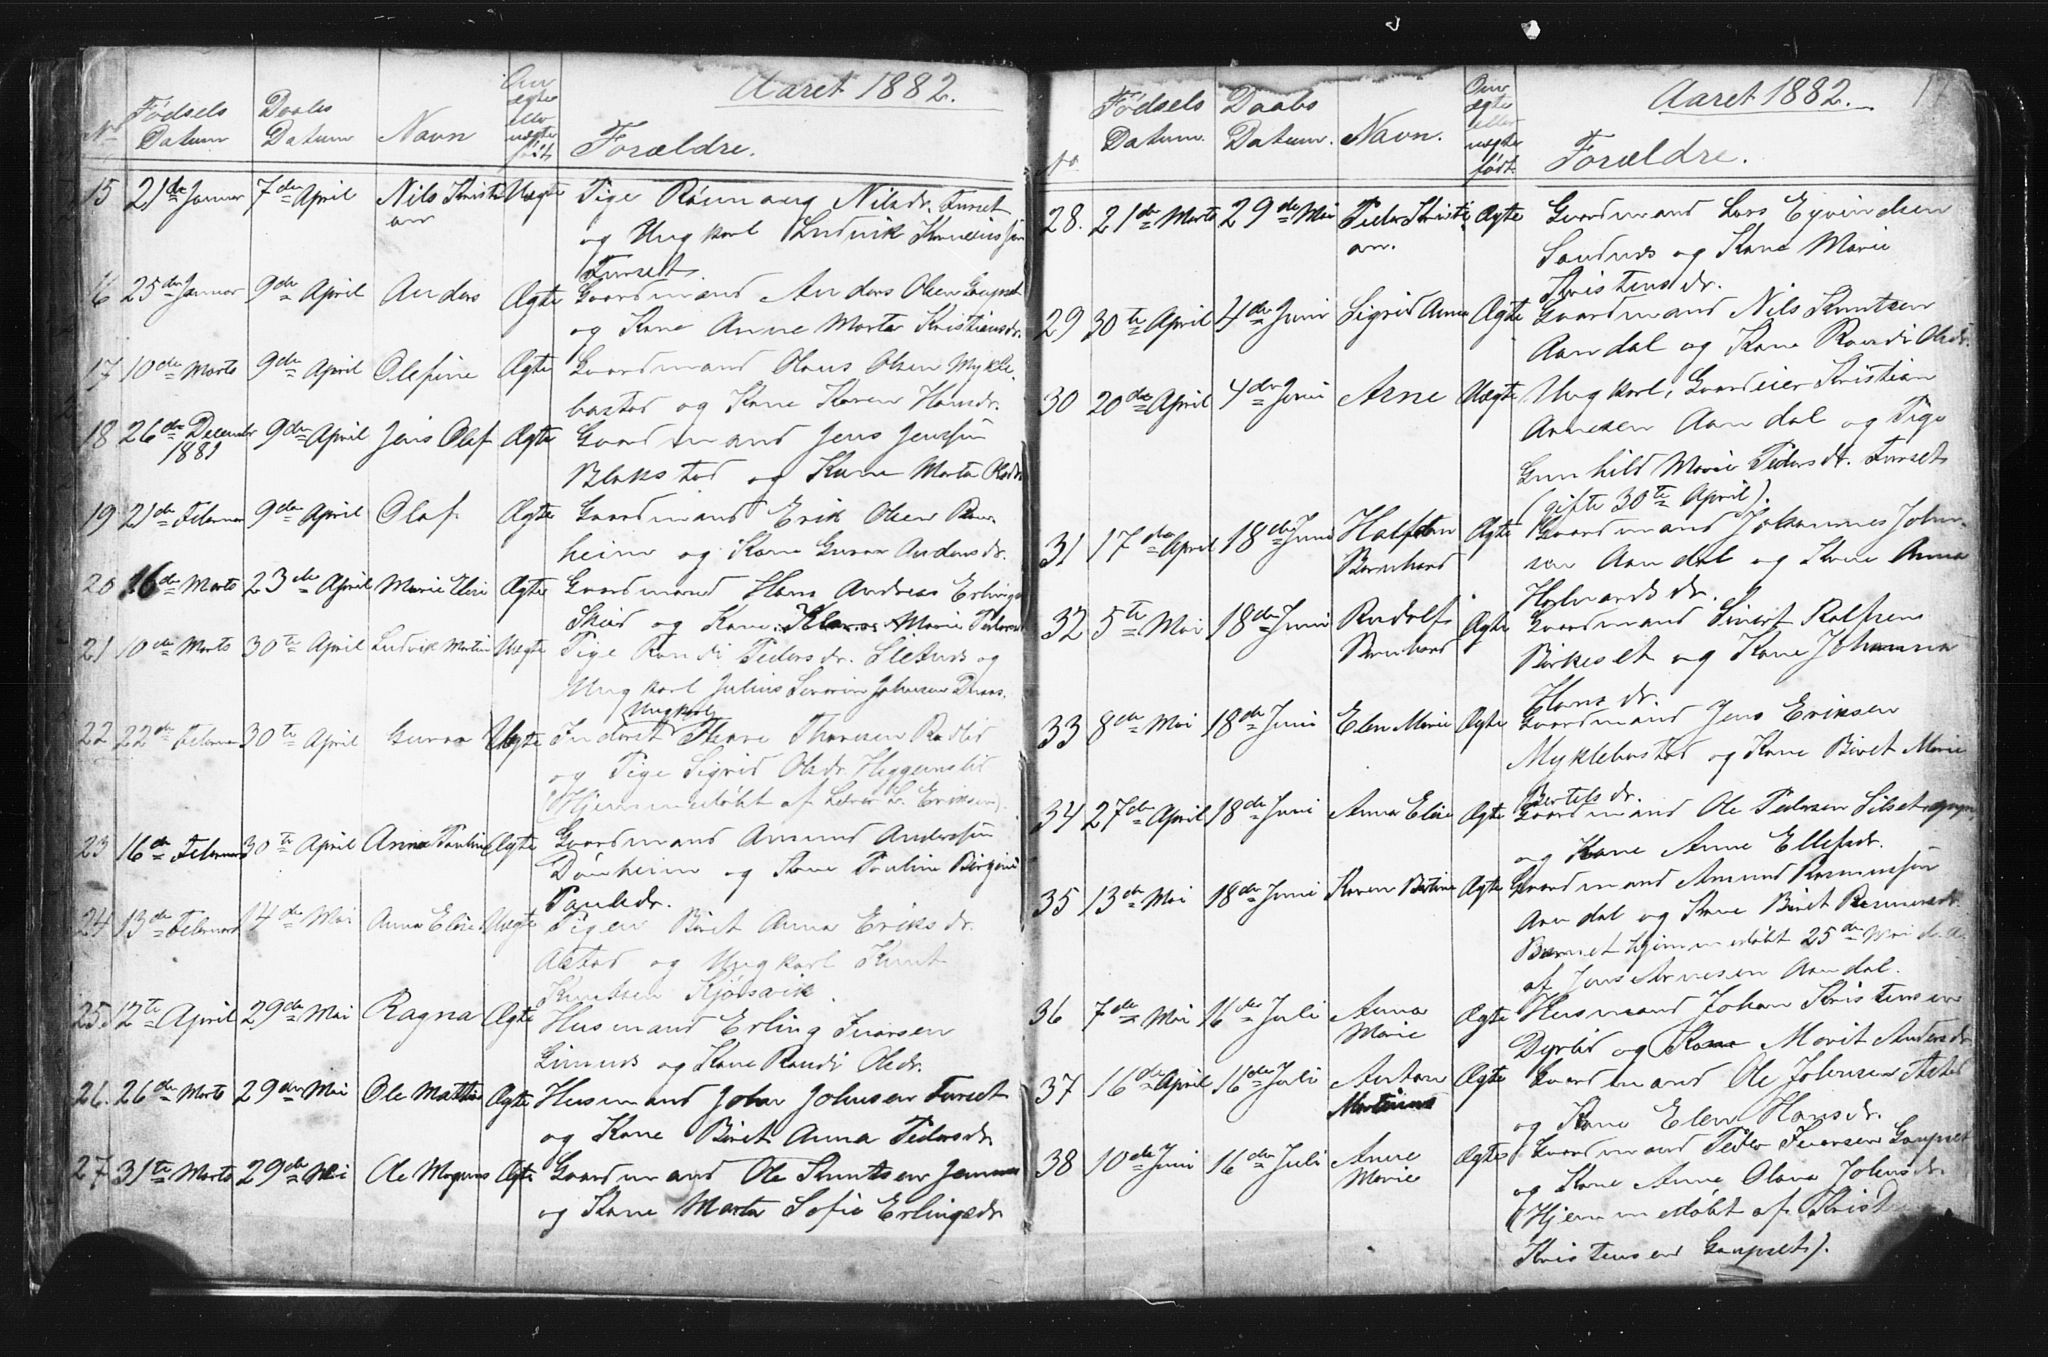 Aaret 1882.
No Fødsels Datum Daabs Datum Navn Om ægte eller uægte født Forældre.
15 21de Januar 7de April Nils Kristi Uægte Tige Rønnaug Nilsdr. Furset
an og Ungkarl Ludvik
Furset.
16 25de Januar 9de April Anders Ægte Gaardmand Anders Olsen Gaupset
og Kone Anne Marta Kristiansdr.
17 10de Marts 9de April Olefine Ægte Gaardmand Hans Olsen Mykle-
bostad og Kone Karen Hansdr.
18 26de December 9de April Jens Olaf Ægte Gaardmand Jens Jenssøn
1881 Blakstad og Kone Marta Olsdr
19 21de Februar 9de April Olaf Ægte Gaardmand Erik Olsen
heim og Kone Guroa Andersdr.
20 16de Marts 23de April Marie Elise Ægte Gaardmand Hans Andreas Erlings
Skeid og Kone Marie Pedersdr
21 10de Marts 30te April Ludvik Martin Uægte Pige Randi Pedersdr. Sletnes og
Ungkarl Julius Severin Johnsen
Ungkarl
22 22de Februar 30te April Guroa Uægte Inderst Thore Thoresen Rødlid
og Pige Sigrid Olsdr. Heggemslid
(Hjemmedøbt af Lærer L. Eriksen).
23 16de Februar 30te April Anna Pauline Ægte Gaardmand Amund Anderssøn
heim og Kone Pauline Birgine
Paulsdr.
24 13de Februar 14de Mai Anna Elise Uægte Pigen Beret Anna Eriksdr.
Astad og Ungkarl Knut
Knutsen Kjøsvik.
25. 12te April 29de Mai Ragna Ægte Husmand Erling Iversen
Limnes og Kone Randi Olsdr.
26. 26de Marts 29de Mai Ole Mathias Ægte Husmand John Johnsen Furset
og Kone Beret Anna Pedersdr.
27 31te Marts 29de Mai Ole Magnus Ægte Gaardmand Ole Knutsen
og Kone Marta Sofie Erlingsdr.
Aaret 1882. 17
No Fødsels Datum. Daabs Datum. Navn. Om ægte eller uægte født. Forældre.
28. 21de Marts 29de Mai Peder Kristi Ægte Gaardmand Lars Eyvindsen
an. Sandnes og Kone Marie
Kristensdr.
29 30te April 4de Juni Sigrid Anna Ægte Gaardmand Nils Knutsen
Aandal og Kone Randi Olsdr.
30 20de April 4de Juni Arne Uægte Ungkarl, Gaardeier Kristian
Arnesen Aandal og Pige
Gunhild Marie Pedersdr. Furset
(gifte 30te April).
31 17de April 18de Juni Halfdan Ægte Gaardmand Johannes John-
Bernhard sen Aandal og Kone Anna
Halvardsdr.
32 5te Mai 18de Juni Rudolf Ægte Gaardmand Sivert Rolfsen
Bernhard Birkeset og Kone Johanna
Hansdr.
33 8de Mai 18de Juni Elen Marie Ægte Gaardmand Jens Eriksen
Myklebostad og Kone Beret Marie
Bertelsdr.
34 27de April 18de Juni Anna Elise Ægte Gaardmand Ole Pedersen Silset
og Kone Anne Ellefsdr.
35 13de Mai 18de Juni Karen Bertine Ægte Gaardmand Amund Rasmussøn
Aandal og Kone Beret Rasmusdr.
Barnet hjemmedøbt 25de Mai
af Jens Arnesen Aandal.
36 7de Mai 16de Juli Anna Ægte Husmand Johan Kristensen
Marie Dyrlid og Kone Marit Andersdr
37 16de April 16de Juli Anton Ægte Gaardmand Ole Johnsen Astad
Martinus og Kone Elen Hansdr.
38 10de Juni 16de Juli Anne Ægte Gaardmand Peder Iversen Gaupset
Marie og Kone Anne Olava Johnsdr.
(Hjemmedøbt af
Kristensen Gaupset).